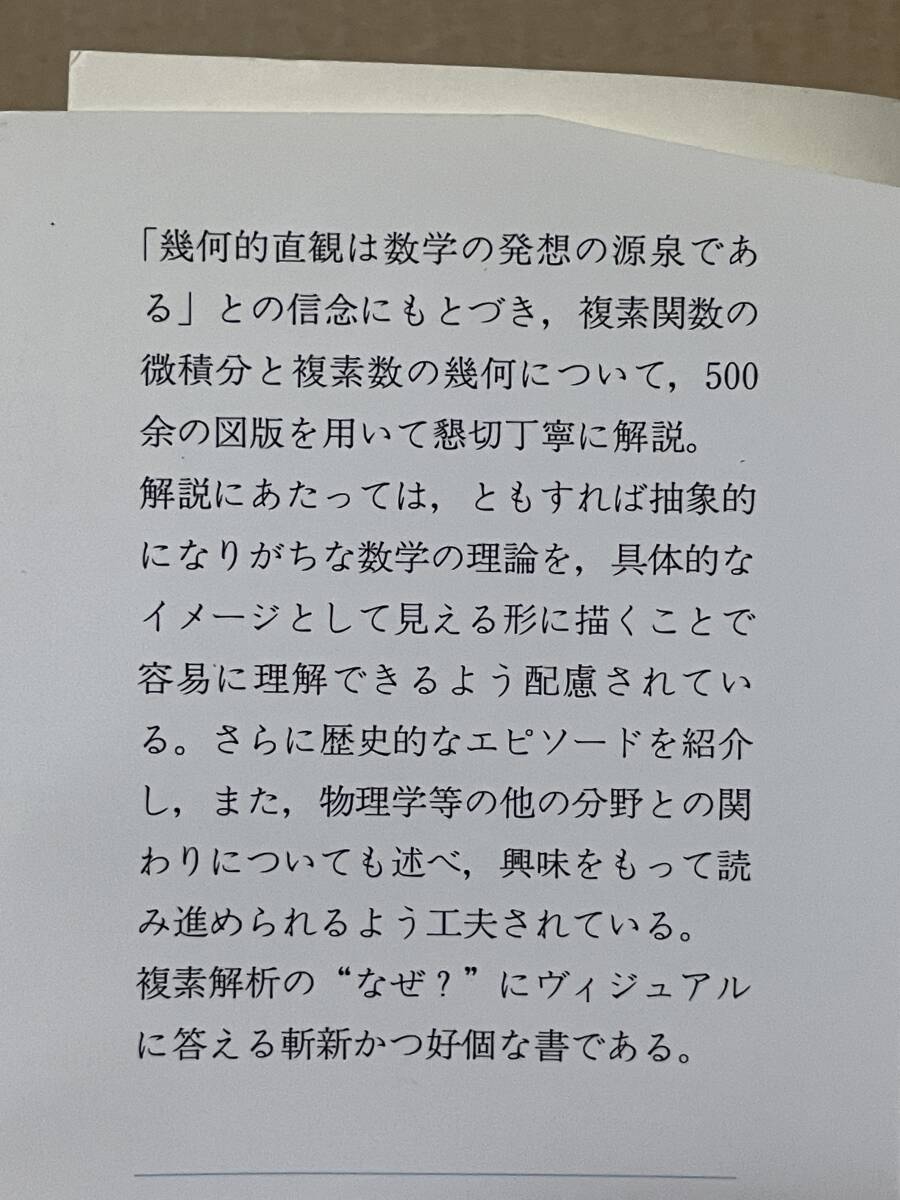 「幾何的直観は数学の発想の源泉であ
る」との信念にもとづき，複素関数の
微積分と複素数の幾何について，500
余の図版を用いて懇切丁寧に解説。
解説にあたっては，ともすれば抽象的
になりがちな数学の理論を，具体的な
イメージとして見える形に描くことで
容易に理解できるよう配慮されてい
る。さらに歴史的なエピソードを紹介
し，また，物理学等の他の分野との関
わりについても述べ，興味をもって読
み進められるよう工夫されている。
複素解析の“なぜ？”にヴィジュアル
に答える斬新かつ好個な書である。